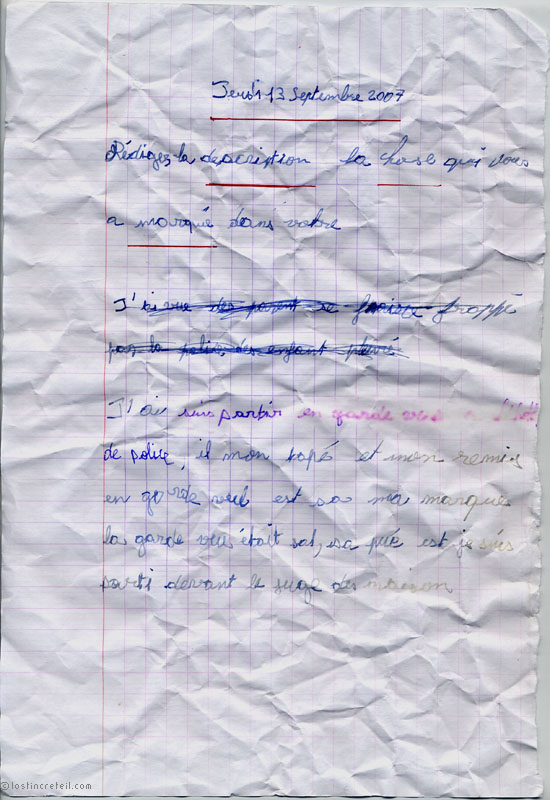 Jeudi 13 Septembre 2007
Rédigez la description la chose qui vous
a marqué dans votre
J'ai vue des parent se faire frappé
par la police, des enfant pleuré
J'ai suis partir en garde vue a
de police, il mon tapé et mon remis
en garde vue est sa ma marqué
la garde vue était sal, sa pué est je suis
parti devant le juge des maison
© lostincreteil.com